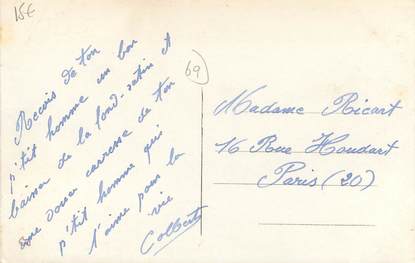 15€
Recois de ton
p'tit homme un bon
baiser de la fond-satin et
une douce carresse de ton
p'tit homme qui
t'aime pour la
vie
Colbert
69
Madame Ricart
16 Rue Houdart
Paris (20)